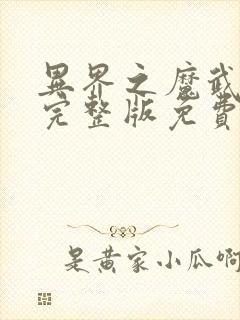 異界之魔武
完整版免費
是黃家小瓜啊